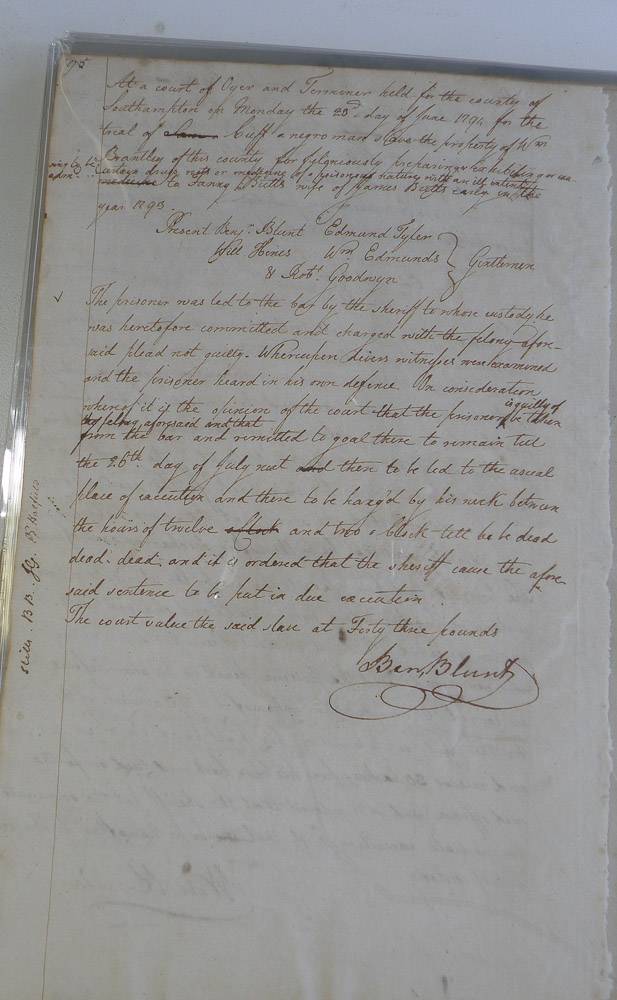 175
At a court of Oyer and Terminer held for the county of
Southampton on Monday the 23d day of June 1794 for the
trial of Cuff a negro man slave the property of Wm
Brantley of this county for feloneously preparing exhibiting
certain drugs roots or medicine of a poisonous nature with an ill intent
medicine to Fanny Butts wife of James Butts early in the
year 1793.
Present Benj. Blunt Edmund Tyler
Will Hines Wm Edmunds Gentlemen
& Robt. Goodwyn
The prisoner was led to the bar by the sheriff to whose custody he
was heretofore committed and charged with the felony afore-
said plead not guilty. Whereupon divers witnesses were examined
and the prisoner heard in his own defence. On consideration
is guilty of
whereof it is the opinion of the court that the prisoner be taken
the felony aforesaid and that
from the bar and remitted to goal there to remain till
the 26th. day of July next and then to be led to the usual
place of execution and there to be hang'd by his neck between
the hours of twelve o clock and two o clock till he be dead
dead. dead. and it is ordered that the sheriff cause the afore-
said sentence to be put in due execution.
The court value the said slave at Forty three pounds
Ben, Blunt